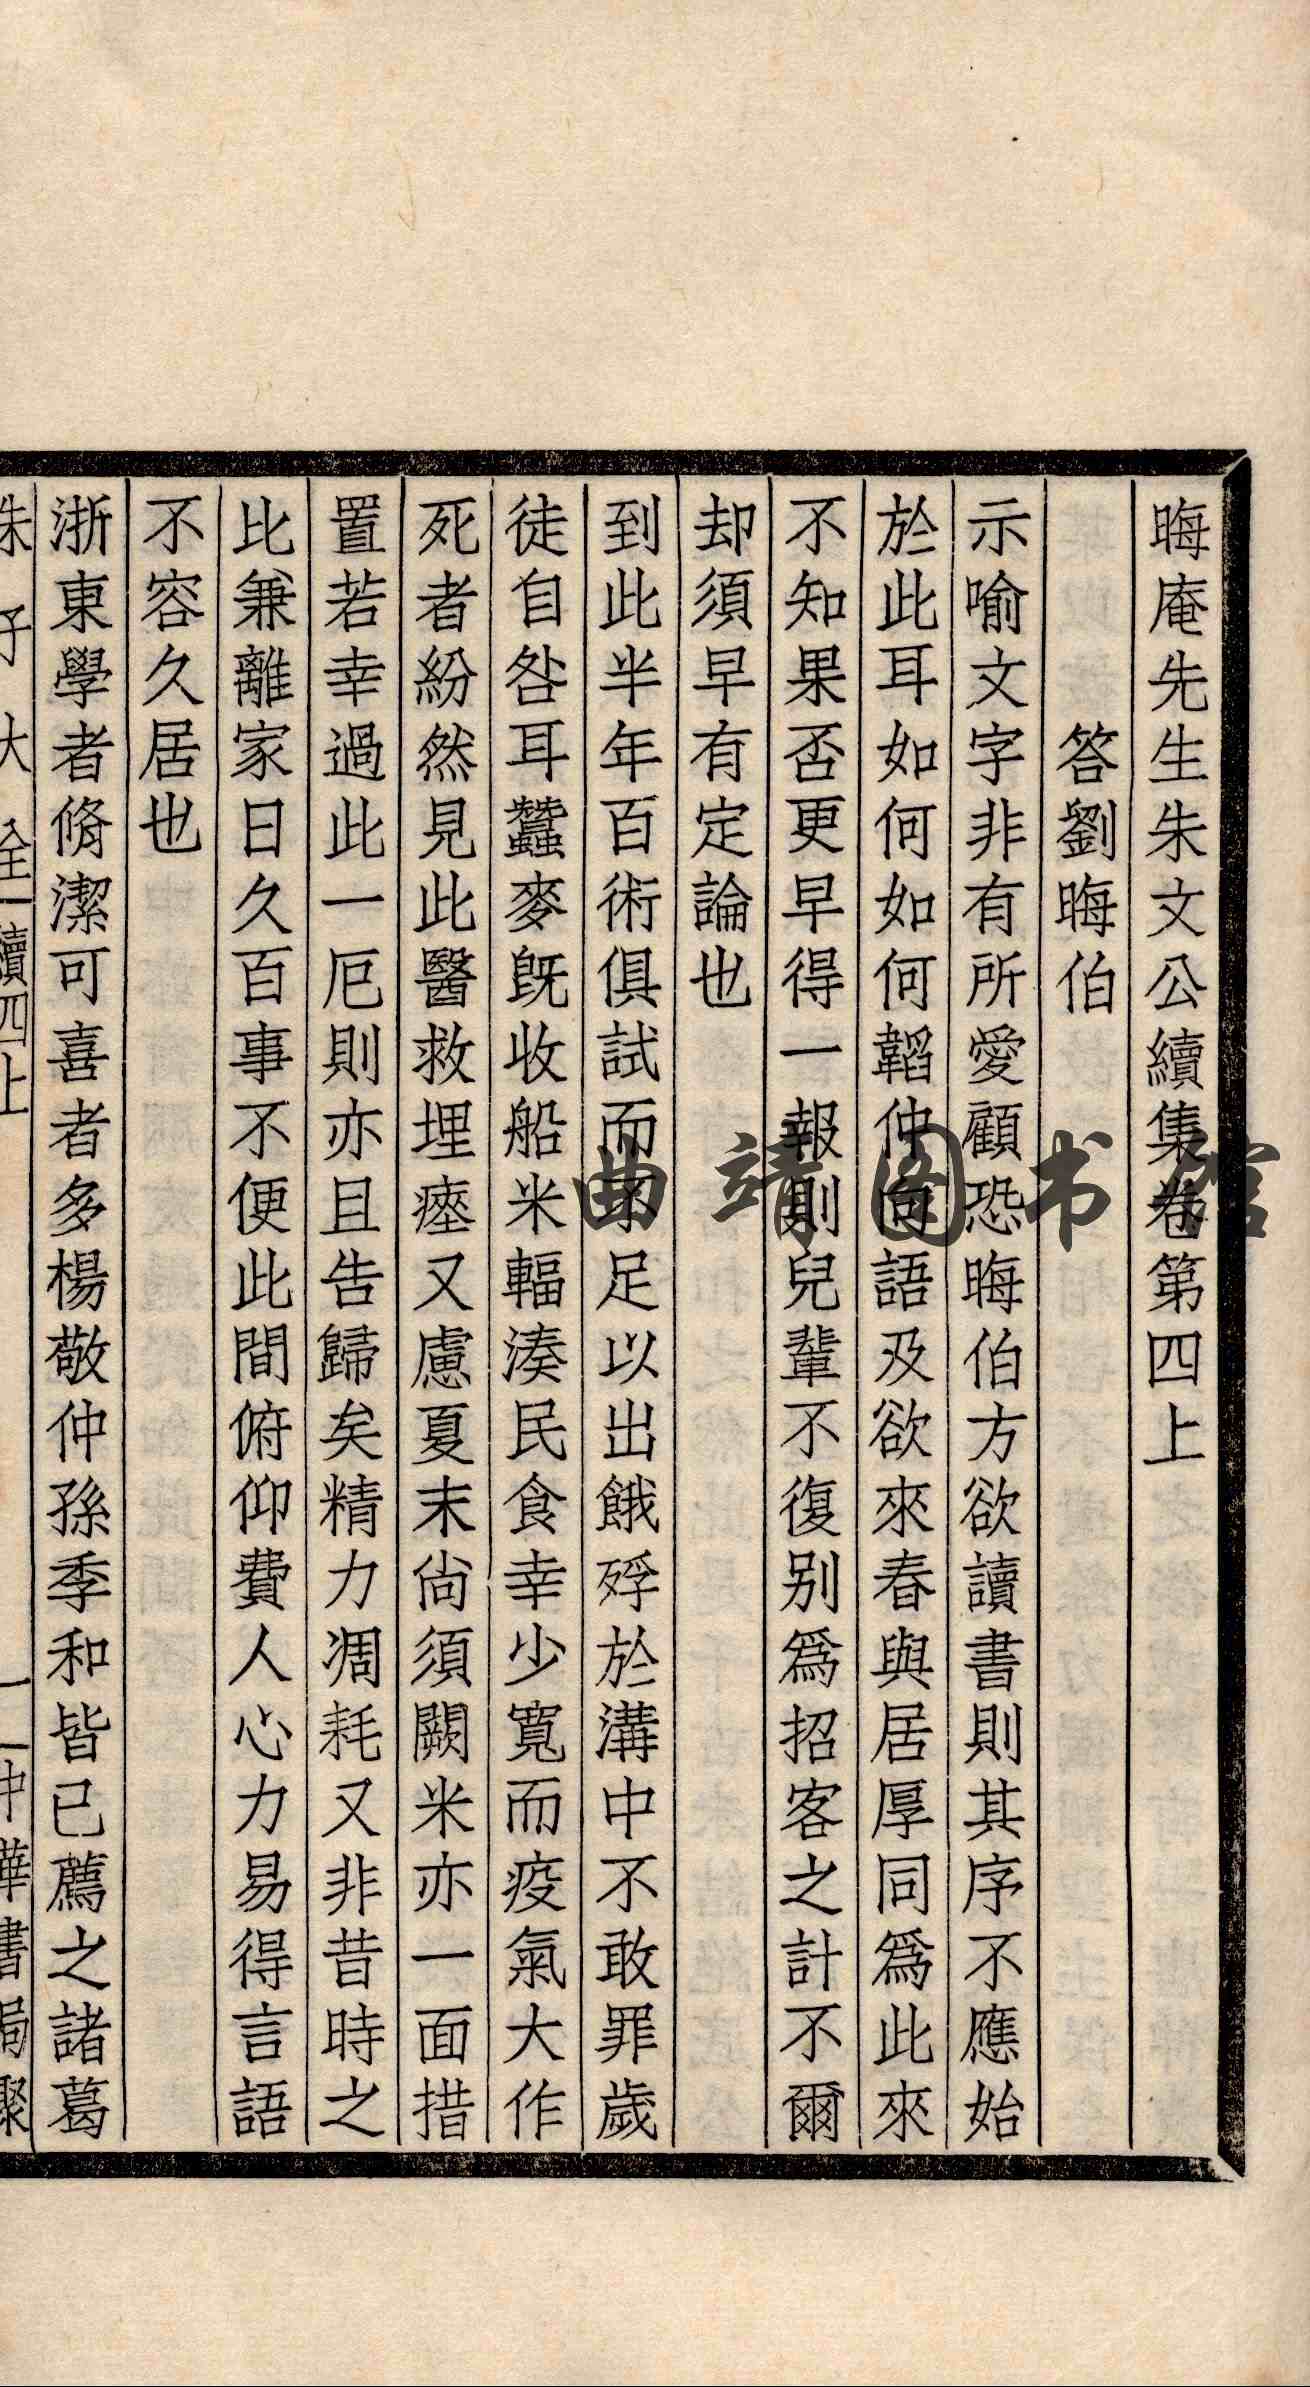 晦庵先生朱文公續集卷第四上
答劉晦伯
示喻文字非有所愛顧恐晦伯方欲讀書則其序不應始
於此耳如何如何韜仲向語及欲來春與居厚同爲此來
不知果否更早得一報則兒輩不復别爲招客之計不爾
却須早有定論也
到此半年百術俱試而不足以出餓殍於溝中不敢罪歲
徒自咎耳蠶麥旣收船米輻湊民食幸少寬而疫氣大作
死者紛然見此醫救埋瘞又慮夏末尙須闕米亦一面措
置若幸過此一厄則亦且告歸矣精力凋耗又非昔時之
比兼離家日久百事不便此間俯仰費人心力易得言語
不容久居也
浙東學者脩潔可喜者多楊敬仲孫季和皆已薦之諸葛
朱子大全 續四上 一 中華書局聚
曲靖图书馆